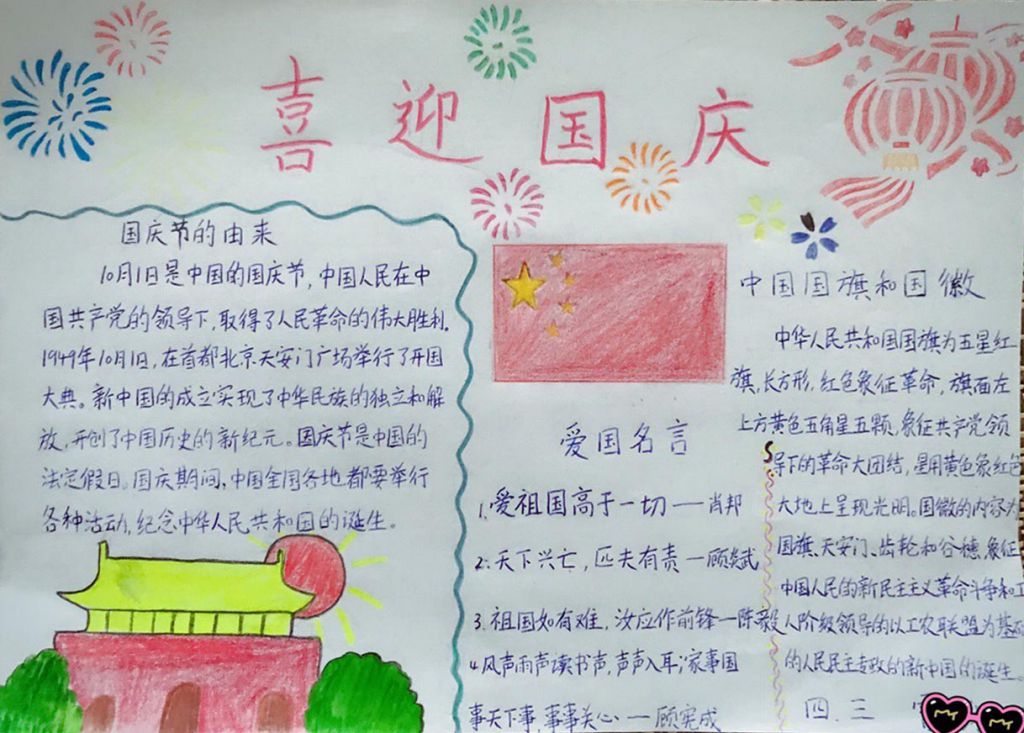 喜迎国庆
国庆节的由来
10月1日是中国的国庆节,中国人民在中
国共产党的领导下,取得了人民革命的伟大胜利。
1949年10月1日,在首都北京天安门广场举行了开国
大典。新中国的成立实现了中华民族的独立和解
放,开创了中国历史的新纪元。国庆节是中国的
法定假日。国庆期间,中国全国各地都要举行
各种活动,纪念中华人民共和国的诞生。
爱国名言
1.爱祖国高于一切——肖邦
2.天下兴亡,匹夫有责—顾炎武
3.祖国如有难,汝应作前锋—陈毅
4.风声雨声读书声,声声入耳;家事国
事天下事,事事关心.—顾宪成
中国国旗和国徽
中华人民共和国国旗为五星红
旗,长方形,红色象征革命,旗面左
上方黄色五角星五颗,象征共产党领
导下的革命大团结,星用黄色象红色
大地上呈现光明。国徽的内容为
国旗、天安门、齿轮和谷穗,象征
中国人民的新民主主义革命斗争和工
人阶级领导的以工农联盟为基础
的人民民主专政的新中国的诞生。
四.三